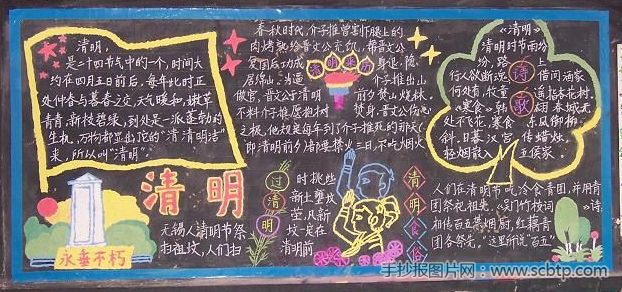 清明，
是二十四节气中的一个，时间大
约在四月五日前后。每年此时正
处仲春与暮春之交，天气暖和，嫩草
青青，新枝碧绿，到处是一派蓬勃的
生机，万物都显出它的“清清明洁”
来，所以叫“清明”。
永垂不朽
清明
春秋时代，介子推曾割下腿上的
肉烤熟给晋文公充饥，帮晋文公
复国后功成身退，隐
居绵山。当逼介子推出山
做官，晋文公于清明前夕焚山烧林，
不料介子推愿抱树焚身。晋文公伤心
之极，他规定每年到了介子推死的那天
(即清明前夕)都要禁火三日，不吃烟火
清明来历
过清明
无锡人清明节祭
扫祖坟，人们扫
时挑些
新土壅坟
茔，凡新
坟一定在
清明前
清明食俗
《清明》
清明时节雨纷
纷，路上
行人欲断魂。借问酒家
何处有，牧童遥指杏花村。
《寒食》韩翃 春城无
处不飞花，寒食东风御柳
斜。日暮汉宫传蜡烛，
轻烟散入五侯家。
诗歌
人们在清明节吃冷食青团，并用青
团祭祀祖先。《吴门竹枝词》诗
相传百五禁烟厨，红藕青
团各祭先。”这里所说“百五”
手抄报图片网：www.scbtp.com